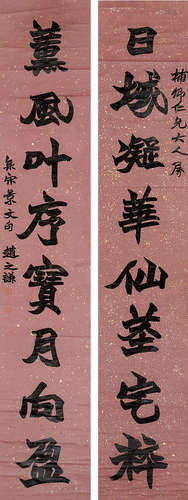 日域凝華仙茎宅粹
補卿仁兄大人屬
薰風叶序寶月向盈
集宋景文句 趙之謙